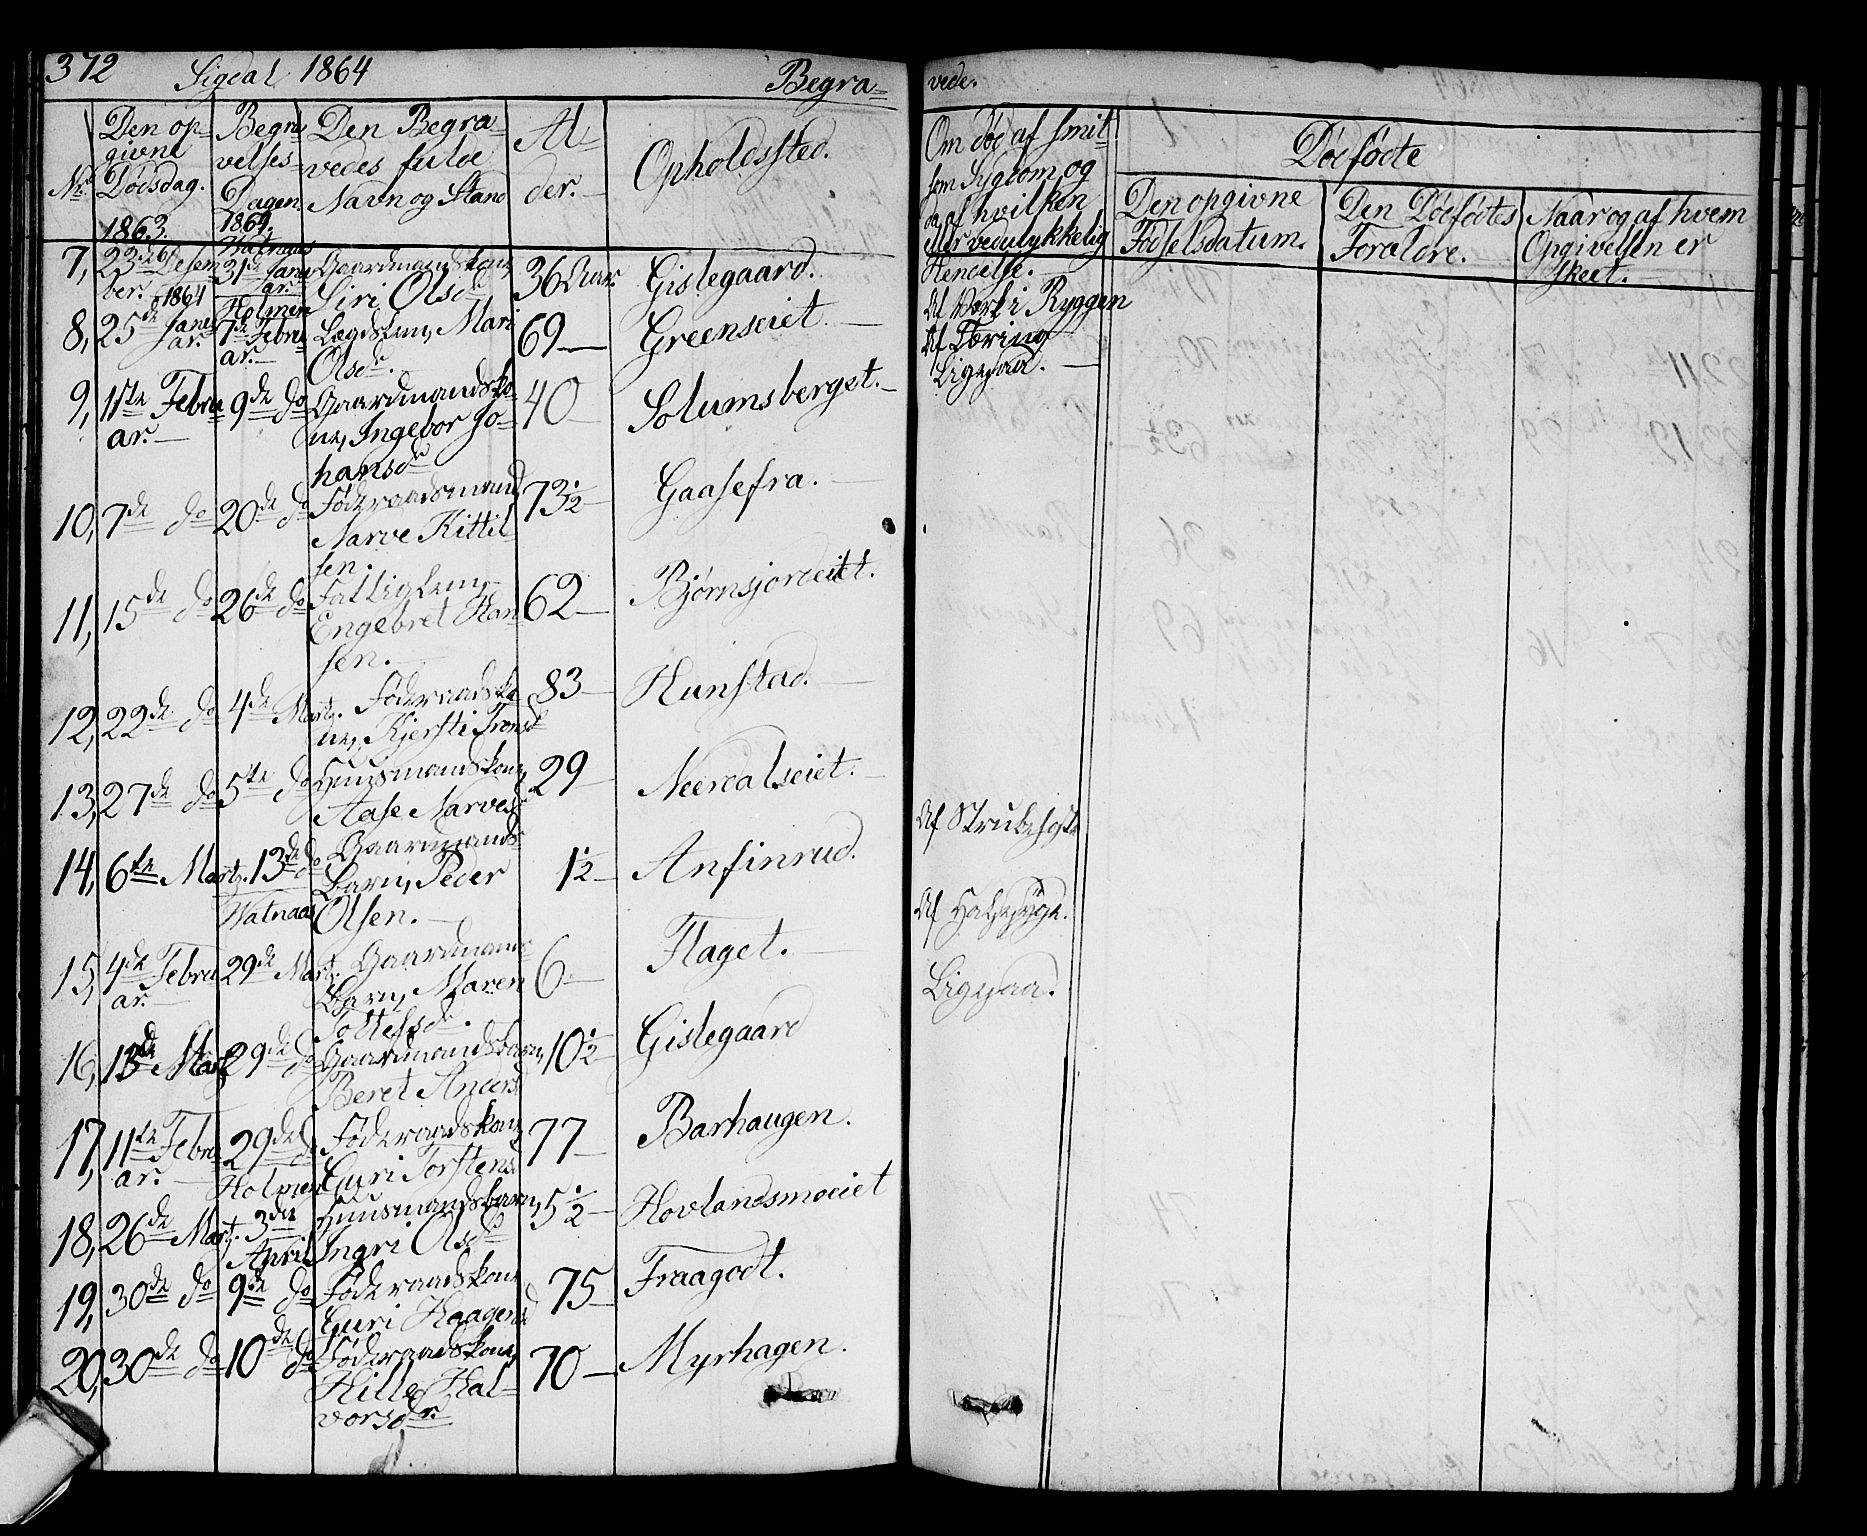 372 Sigdal 1864 Begra= vede.
Nr. Den op= givne Dødsdag. Begra velses= Dagen Den Begra= vedes fulde Navn og Stand Al= der. Opholdssted. Om død af smit= som Sygdom og da af hvilken eller ved ulykkelig Hendelse. Dødfødte
Den opgivne Fødselsdatum. Den Dødfødtes Foreldre. Naar og af hvem Opgivelsen er skeet.
1863. 1864.
Watnaas
7, 23de Desem ber. 31te Janu ar. Gaardmandskone Siri Olsdr 36 Aar. Gislegaard. Af Værk i Ryggen
1864 Holmen
8, 25de Janu ar. 7de Febru ar. Lægdslem, Mari Olsdr. 69 Greenseiet. Af Tæring
9, 11te Febru ar. 9de do Gaardmandsko= ne, Ingebor Jo= hansdr 40 Solumsberget. Ligesaa.
10, 7de do 20de do Føderaadsmand Narve Kittil sen. 73 1/2 Gaasefra.
11, 15de do 26de do Fattiglem, Engebret Han sen. 62 Bjørnsjordeiet.
12, 22de do 4de Martz. Føderaadsko ne, Kjersti Tronsdr 83 Hunstad.
13, 27de do 5te do Huusmandskone, Aase Narvesdr 29 Neerdalseiet.
14, 6te Martz. 13de do Gaardmands Barn, Peder Olsen. 1 1/2 Anfinrud. Af Strubesyge
Watnaas
15, 4de Febru ar. 29de Martz. Gaardmands Barn, Maren Tollefsdr. 6 Flaget. Af Halssyge.
16, 13de Martz 29de do Gaardmandsbarn, Beret Andersd 10 1/2 Gislegaard Ligesaa.
17, 11te Febru ar. 29de do Føderaadskone, Guri Torstensd 77 Barhaugen.
Holmen
18, 26de Martz. 3die April Huusmandsbarn, Ingri Olsdr 5 1/2 Hovlandsmoeiet
19, 30de do 9de do Føderaadskone Guri Haagensd 75 Fraagodt.
20, 30de do 10de do Føderaadskone, Hille Hal= vorsdr. 70 Myrhagen.